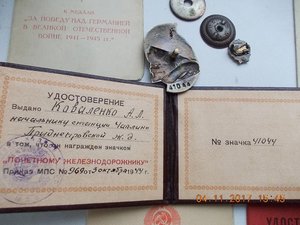 К МЕДАЛИ
„ЗА ПОБЕДУ НАД ГЕРМАНИЕЙ
В ВЕЛИКОЙ ОТЕЧЕСТВЕННОЙ
ВОЙНЕ 1941—1945 гг."
41044
УДОСТОВЕРЕНИЕ
Выдано Коваленко А.Л.
начальнику станции Чаплино
Приднепровской ж.д.
в том, что он награжден значком
„ПОЧЕТНОМУ ЖЕЛЕЗНОДОРОЖНИКУ"
Приказ МПС № 969 от 3 октября 1944 г.
№ значка 41044
04 11 2017 15:45
УДОСТ